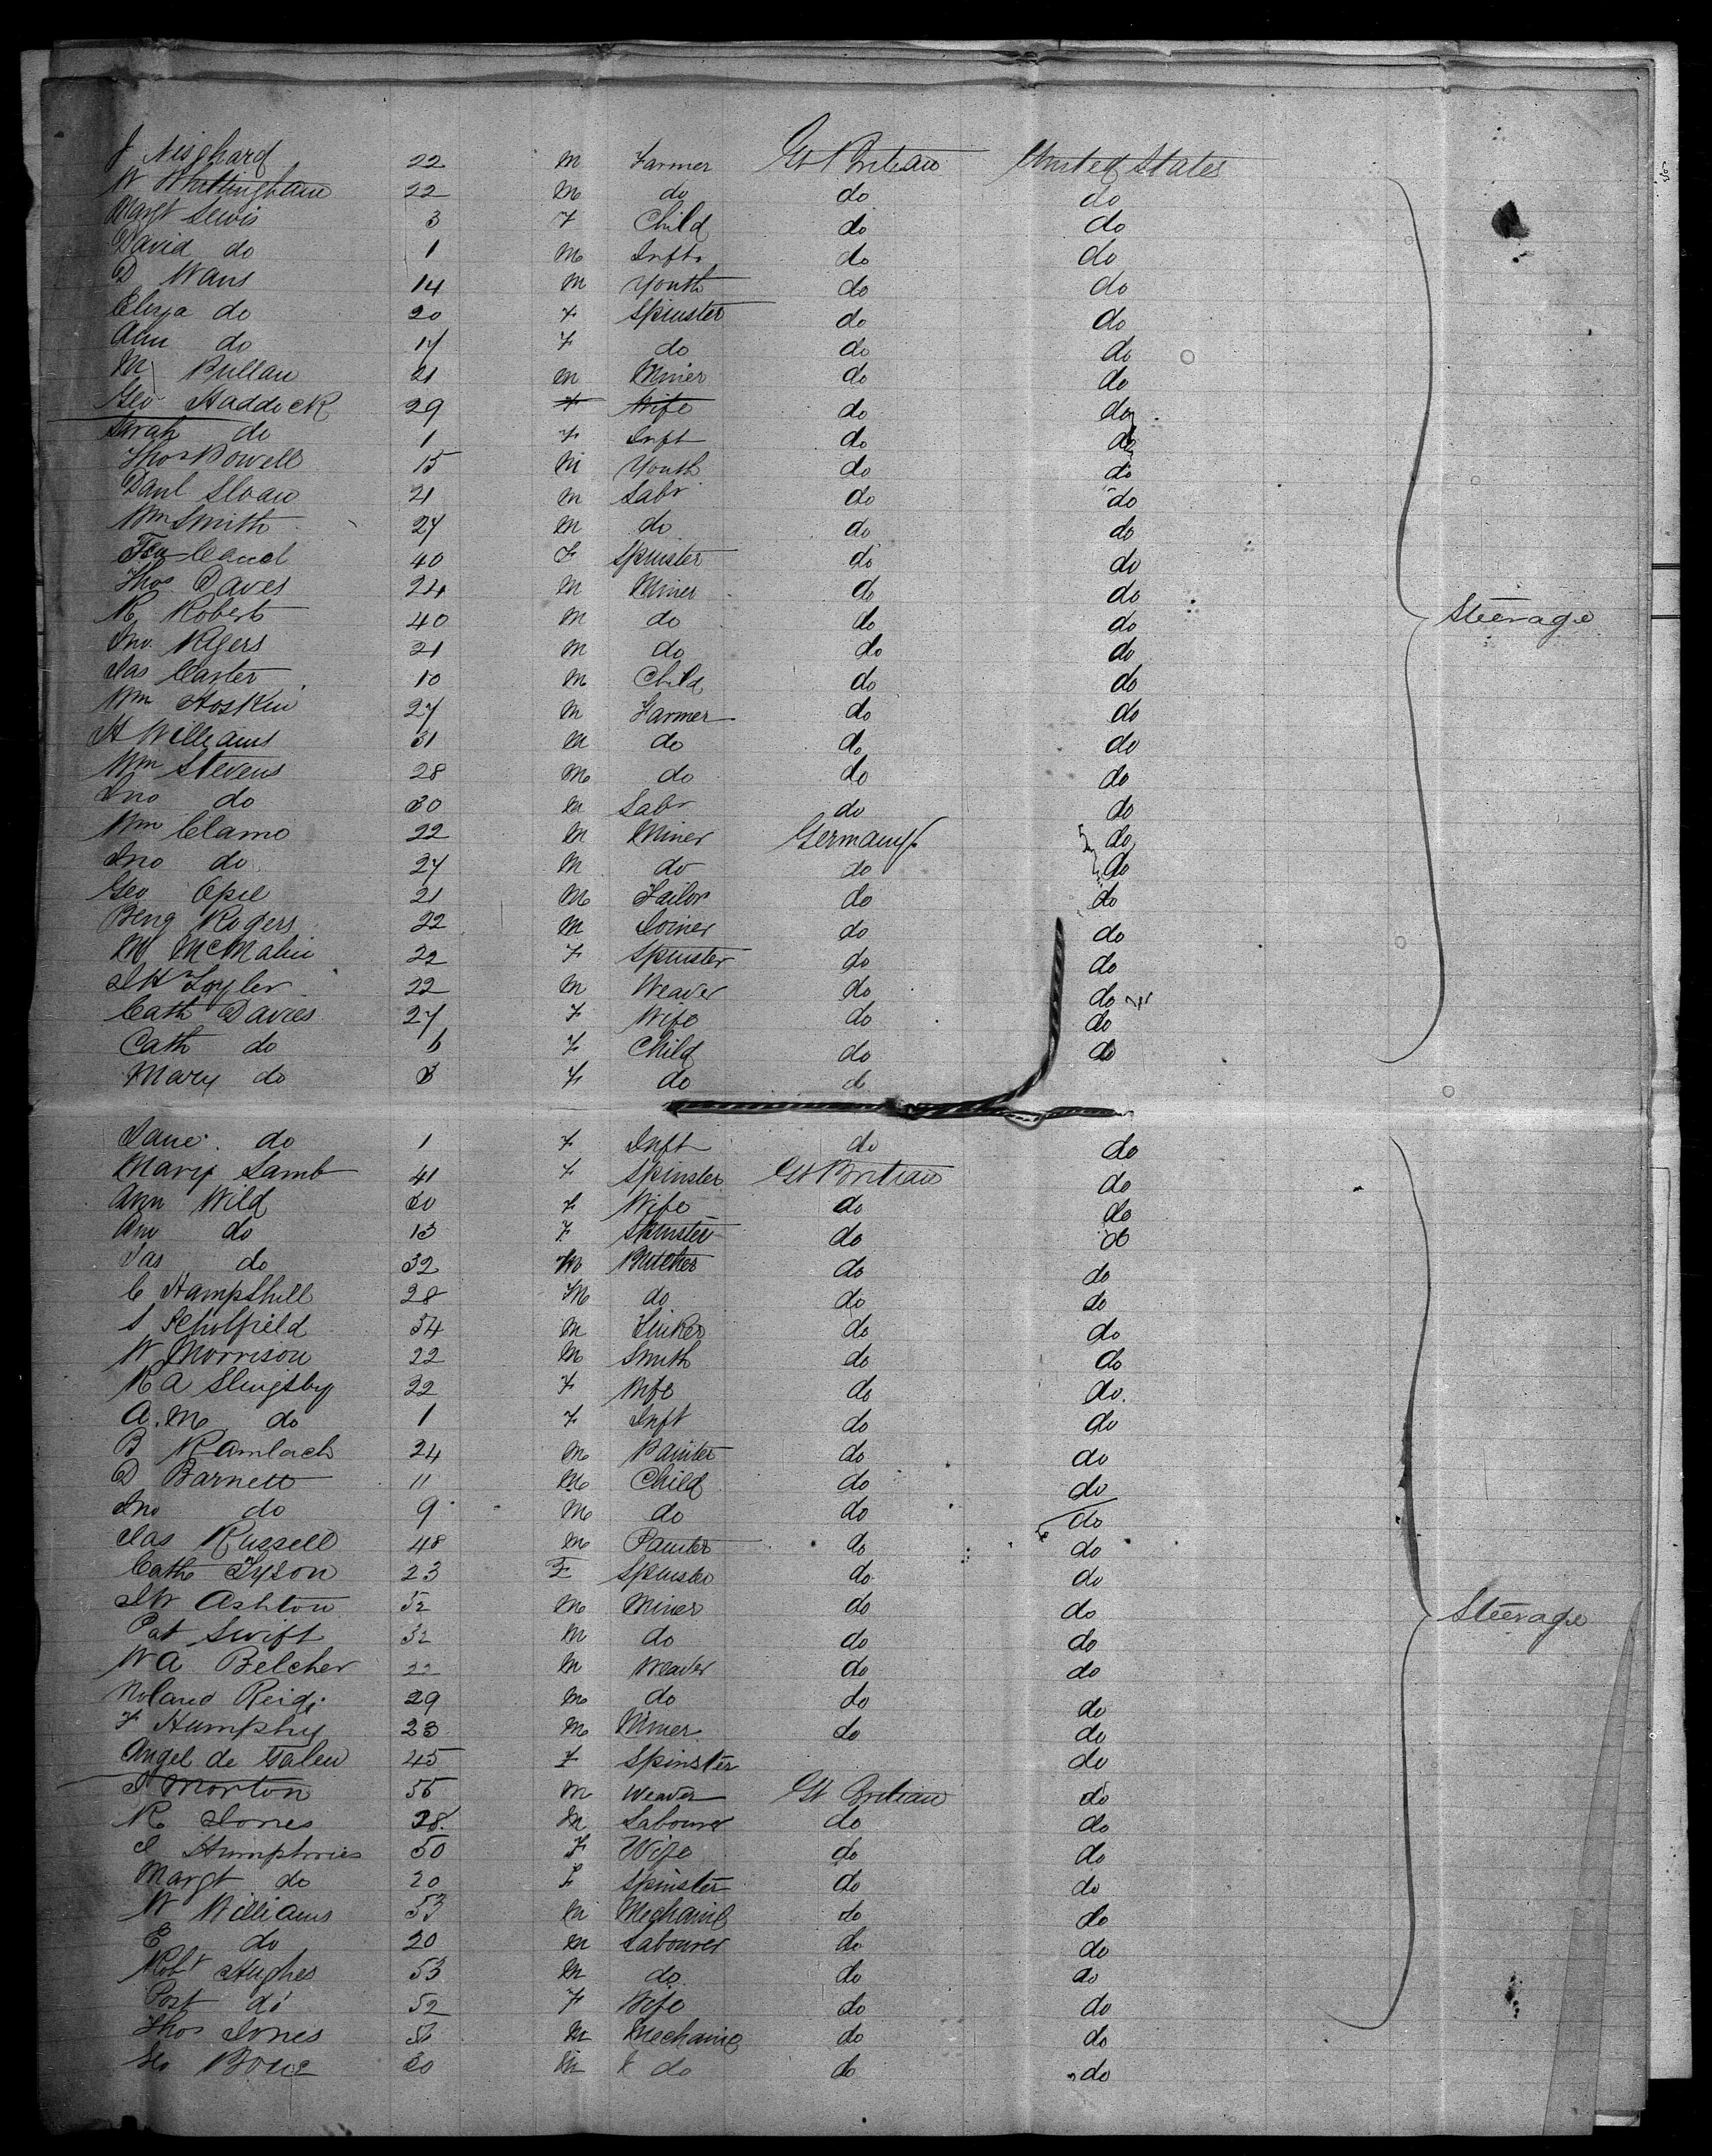 J Nisghard 22 m Farmer Gt Britain United States
W Whittingham 22 m do do do
Margt Lewis 3 F Child do do
David do 1 m Inft. do do
D Wans 14 m Youth do do
Eliza do 20 F Spinster do do
Ann do 17 F do do do
M Bullan 21 m Miner do do
Geo Haddock 29 F Wife do do
Sarah do 1 F Inft do do
Thos Powell 15 m Youth do do
Danl Sloan 21 m Labr do do
Wm Smith 27 m do do do
40 F Spinster do do
Thos Daves 24 m Miner do do
R Roberts 40 m do do do
Jno. Rogers 21 m do do do
Steerage
Jas Carter 10 m Child do do
Wm Hoskin 27 m Farmer do do
H Williams 31 m do do do
Wm Stevens 28 m do do do
Jno do 30 m Labr do do
Wm Clamo 22 m Miner Germany. do
Jno do 27 m do do do
Geo Opie 21 m Tailor do do
Benj Rogers 22 m Joiner do do
M McMalin 22 F Spinster do do
J H Toyler 22 m Weaver do do
Cath Davies 27 F Wife do do
Cath do 6 F Child do do
Mary do 3 F do do
Jane do 1 F Inft do do
Mary Lamb 41 F Spinster Gt Britain do
Ann Wild 30 F Wife do do
Ann do 13 F Spinster do do
Jas do 32 m Butcher do do
C Hampshill 28 M do do do
S Scholfield 34 m do do
W Morrison 22 m Smith do do
R A Slingsby 22 F Wife do do
A. M do 1 F Inft do do
B Ramlach 24 m Painter do do
D Barnett 11 m Child do do
Jno do 9 m do do do
Jas Russell 48 m Painter do do
Cath Tyson 23 F Spinster do do
J W Ashton 52 m Miner do do
Steerage
Pat Swift 32 m do do do
W A Belcher 22 m Weaver do do
Roland Reid 29 m do do do
F Humphry 23 m Miner do do
Angel de Galen 45 F Spinster do
J Morton 56 m Weaver Gt Britain do
R Jones 38 m Labourer do do
J Humphries 50 F Wife do do
Margt do 20 F Spinster do do
W Williams 53 m Mechanic do do
E do 20 m Labourer do do
Robt Hughes 53 m do do do
Post do 52 F Wife do do
Thos Jones m Mechanic do do
Geo 30 m do do do